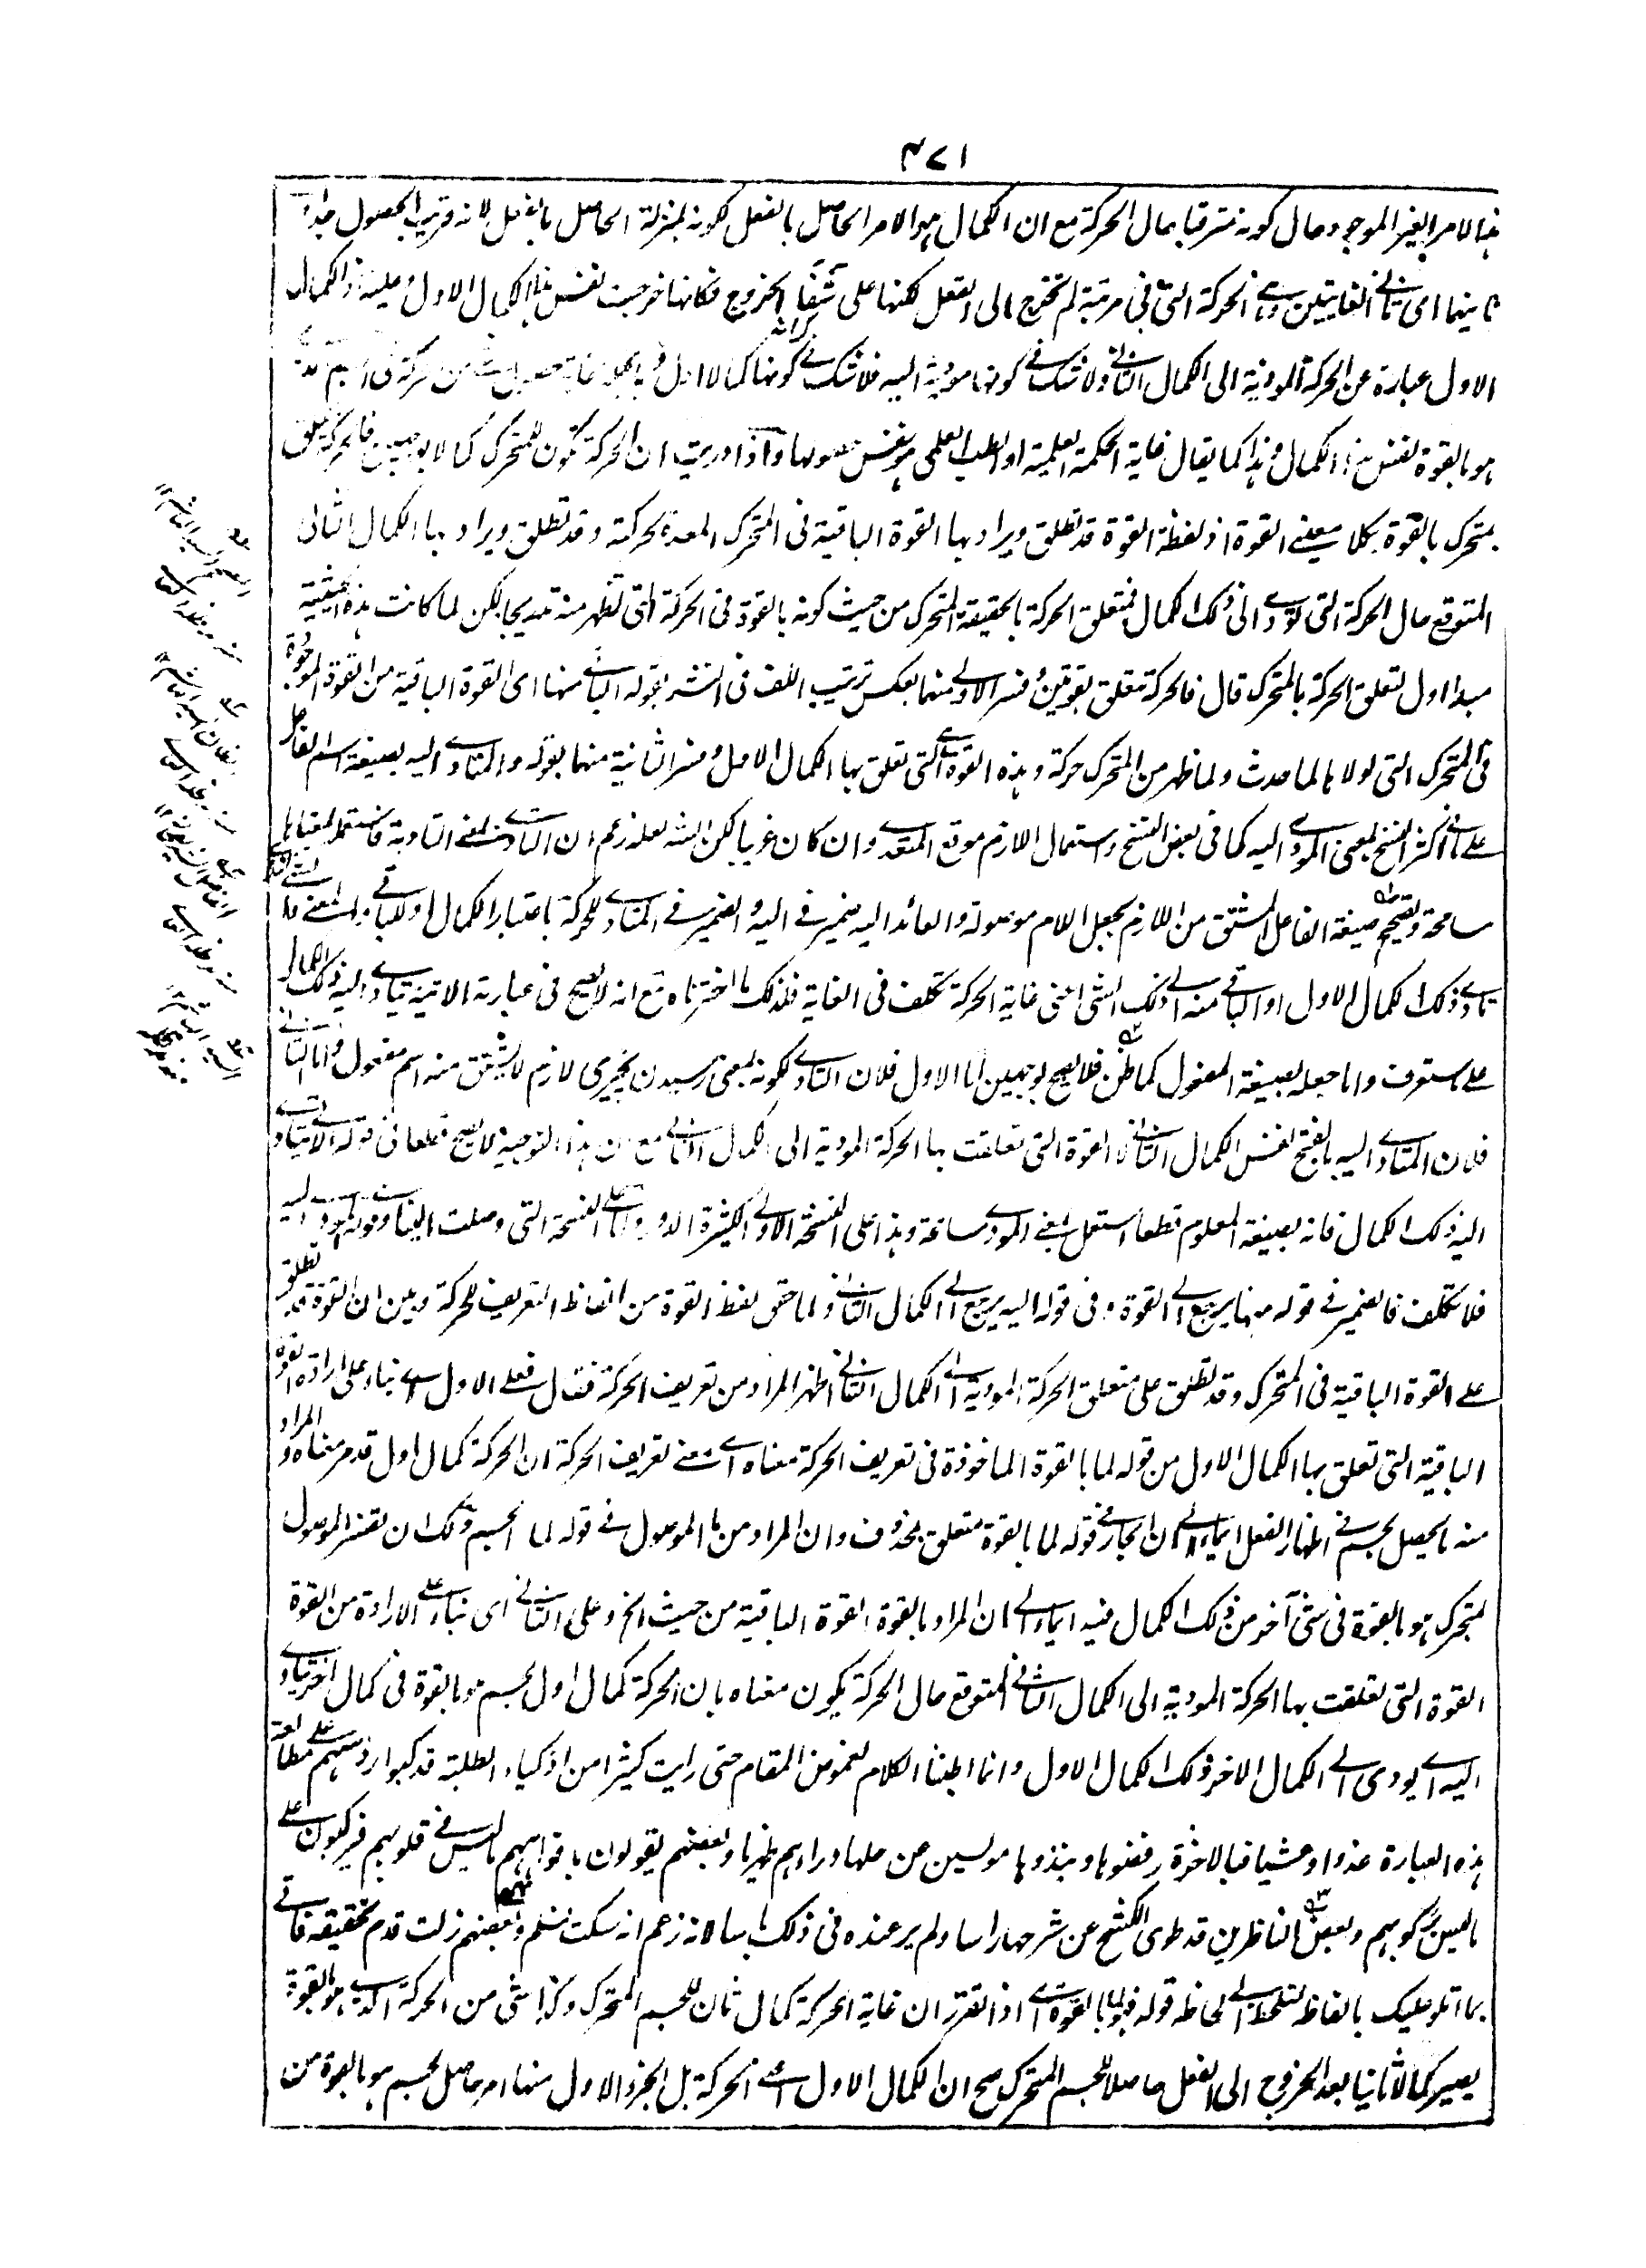 ٣٧١
هذا الامر الغير الموجود حال كونه مترقبا بحال الحركة مع ان الكمال هو الامر الحاصل بالفعل لكونه بمنزلة الحاصل بالفعل لانه قريب الحصول جدا
ثانيها اى ثانى الغايتين وهى الحركة التى فى مرتبة لم تخرج الى الفعل لكنها على شفا الخروج فكانها خرجت نفس هذا الكمال الاول
الاول عبارة عن الحركة المودية الى الكمال الثانى ولا شك فى كونها مودية اليه فلا شك فى كونها كمالا اول
هو بالقوة نفس هذا الكمال وهذا كما يقال غاية الحكمة العلمية او الطب العلمى هو نفس حصولها واذا دريت ان الحركة تكون للمتحرك كمالا
بمتحرك بالقوة بكلا معنيى القوة اذ لفظة القوة قد تطلق ويراد بها القوة الباقية فى المتحرك المعدة لحركته وقد تطلق ويراد بها الكمال الثانى
المتوقع حال الحركة التى تودى الى ذلك الكمال فمتعلق الحركة بالحقيقة المتحرك من حيث كونه بالقوة فى الحركة التى تظهر منه تدريجا لكن لما كانت هذه الحيثية
مبدا اول لتعلق الحركة بالمتحرك قال فالحركة تتعلق بقوتين وفسر الاولى منهما بعكس ترتيب اللف فى النشر بقوله الباقى منها اى القوة الباقية من القوة الموجودة
فى المتحرك التى لولاها لما حدث ولما ظهر من المتحرك حركة وهذه القوة هى التى تعلق بها الكمال الاول وفسر الثانية منهما بقوله والمتادى اليه بصيغة اسم الفاعل
على ما فى اكثر النسخ بمعنى المودى اليه كما فى بعض النسخ واستعمال اللازم موقع المتعدى وان كان غريبا لكن الشه لعله زعم ان التادى بمعنى التادية فاستعمله بمعناها
مسامحة وتصحيح صيغة الفاعل المشتق من اللازم بجعل اللام موصولة والعائد اليه ضمير فى اليه والضمير فى المتادى للحركة باعتبار الكمال او للباقى
تادى ذلك الكمال الاول او الباقى منه الى ذلك الشى اعنى غاية الحركة تكلف فى الغاية فلذلك ما اخترناه مع انه لا يصح فى عبارته الاتية يتادى اليه ذلك الكمال
على ما ستعرف واما جعله بصيغة المفعول كما ظن فلا يصح لوجهين اما الاول فلان التادى لكونه بمعنى رسيدن بچيزى لازم لا يشتق منه اسم مفعول واما الثانى
فلان المتادى اليه بالفتح نفس الكمال الثانى لا القوة التى تعلقت بها الحركة المودية الى الكمال الثانى مع ان هذا التوجيه لا يصح قطعا فى قوله الاتى يتادى
اليه ذلك الكمال فانه بصيغة المعلوم قطعا استعمل بمعنى المودى مسامحة وهذا على النسخة الاولى الكثيرة الدور واما على النسخة التى وصلت الينا وهو المودى اليه
فلا تكلف فالضمير فى قوله منها يرجع الى القوة وفى قوله اليه يرجع الى الكمال الثانى ولما حقق لفظ القوة من الفاظ التعريف للحركة وبين ان القوة قد تطلق
على القوة الباقية فى المتحرك وقد تطلق على متعلق الحركة المودية الى الكمال الثانى اظهر المراد من تعريف الحركة فقال فعلى الاول اى بناء على ارادة القوة
الباقية التى تعلق بها الكمال الاول من قوله لما بالقوة الماخوذة فى تعريف الحركة معناه اى معنى تعريف الحركة ان الحركة كمال اول قد مر معناه والمراد
منه ما يحصل لجسم فى اظهار الفعل ايماء الى ان الجار فى قوله لما بالقوة متعلق بمحذوف وان المراد من ما الموصول فى قوله لما الجسم ولك ان تفسر الموصول
لمتحرك هو بالقوة فى شى آخر من ذلك الكمال فيه ايماء الى ان المراد بالقوة القوة الباقية من حيث الخ وعلى الثانى اى بناء على الارادة من القوة
القوة التى تعلقت بها الحركة المودية الى الكمال الثانى المتوقع حال الحركة يكون معناه بان الحركة كمال اول لجسم هو بالقوة فى كمال آخر يتادى
اليه اى يودى الى الكمال الاخر ذلك الكمال الاول وانما اطنبنا الكلام لغموض المقام حتى رايت كثيرا من اذكياء الطلبة قد كبوا رؤسهم على مطالعة
هذه العبارة غدوا وعشيا فبالاخرة رفضوها ونبذوها مويسين عن حلها وراءهم ظهريا وبعضهم يقولون بافواههم ما ليس فى قلوبهم فيركبون على
ما ليس مركوبهم وبعض الناظرين قد طوى الكشح عن شرحها راسا ولم ير عنده فى ذلك باسا لانه زعم انه سكت فسلم وبعضهم زلت قدم تحقيقه فاتى
بما اتلو عليك بالفاظه لتلحظ الى لحاظه قوله فهو لما بالقوة اى اذا تقرر ان غاية الحركة كمال ثان للجسم المتحرك وكذا شى من الحركة الذى هو بالقوة
يصير كمالا ثانيا بعد الخروج الى الفعل حاصلا للجسم المتحرك صح ان الكمال الاول اعنى الحركة بل الجزء الاول منها امر حاصل لجسم هو بالقوة من